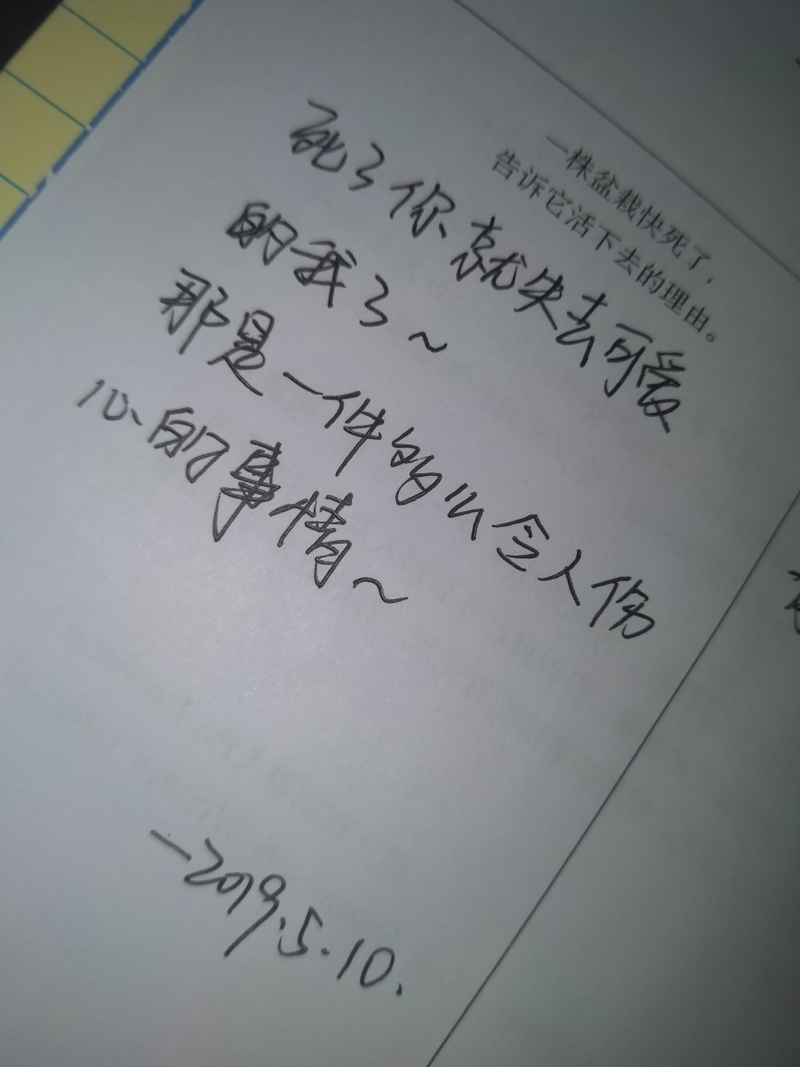 一株盆栽快死了，
告诉它活下去的理由。
死了你就失去可爱
的我了~
那是一件的以令人伤
心的事情~
-2019.5.10.